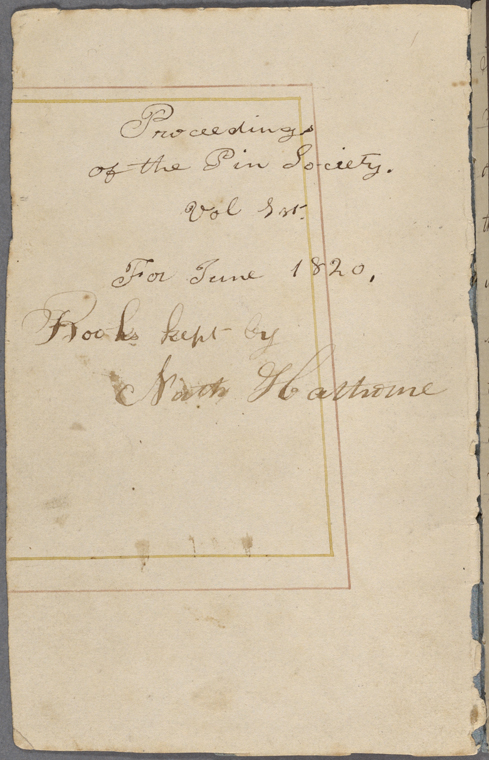 Proceedings
of the Pin Society.
Vol 1st.
For June 1820.
Books kept by
Nath Hathorne